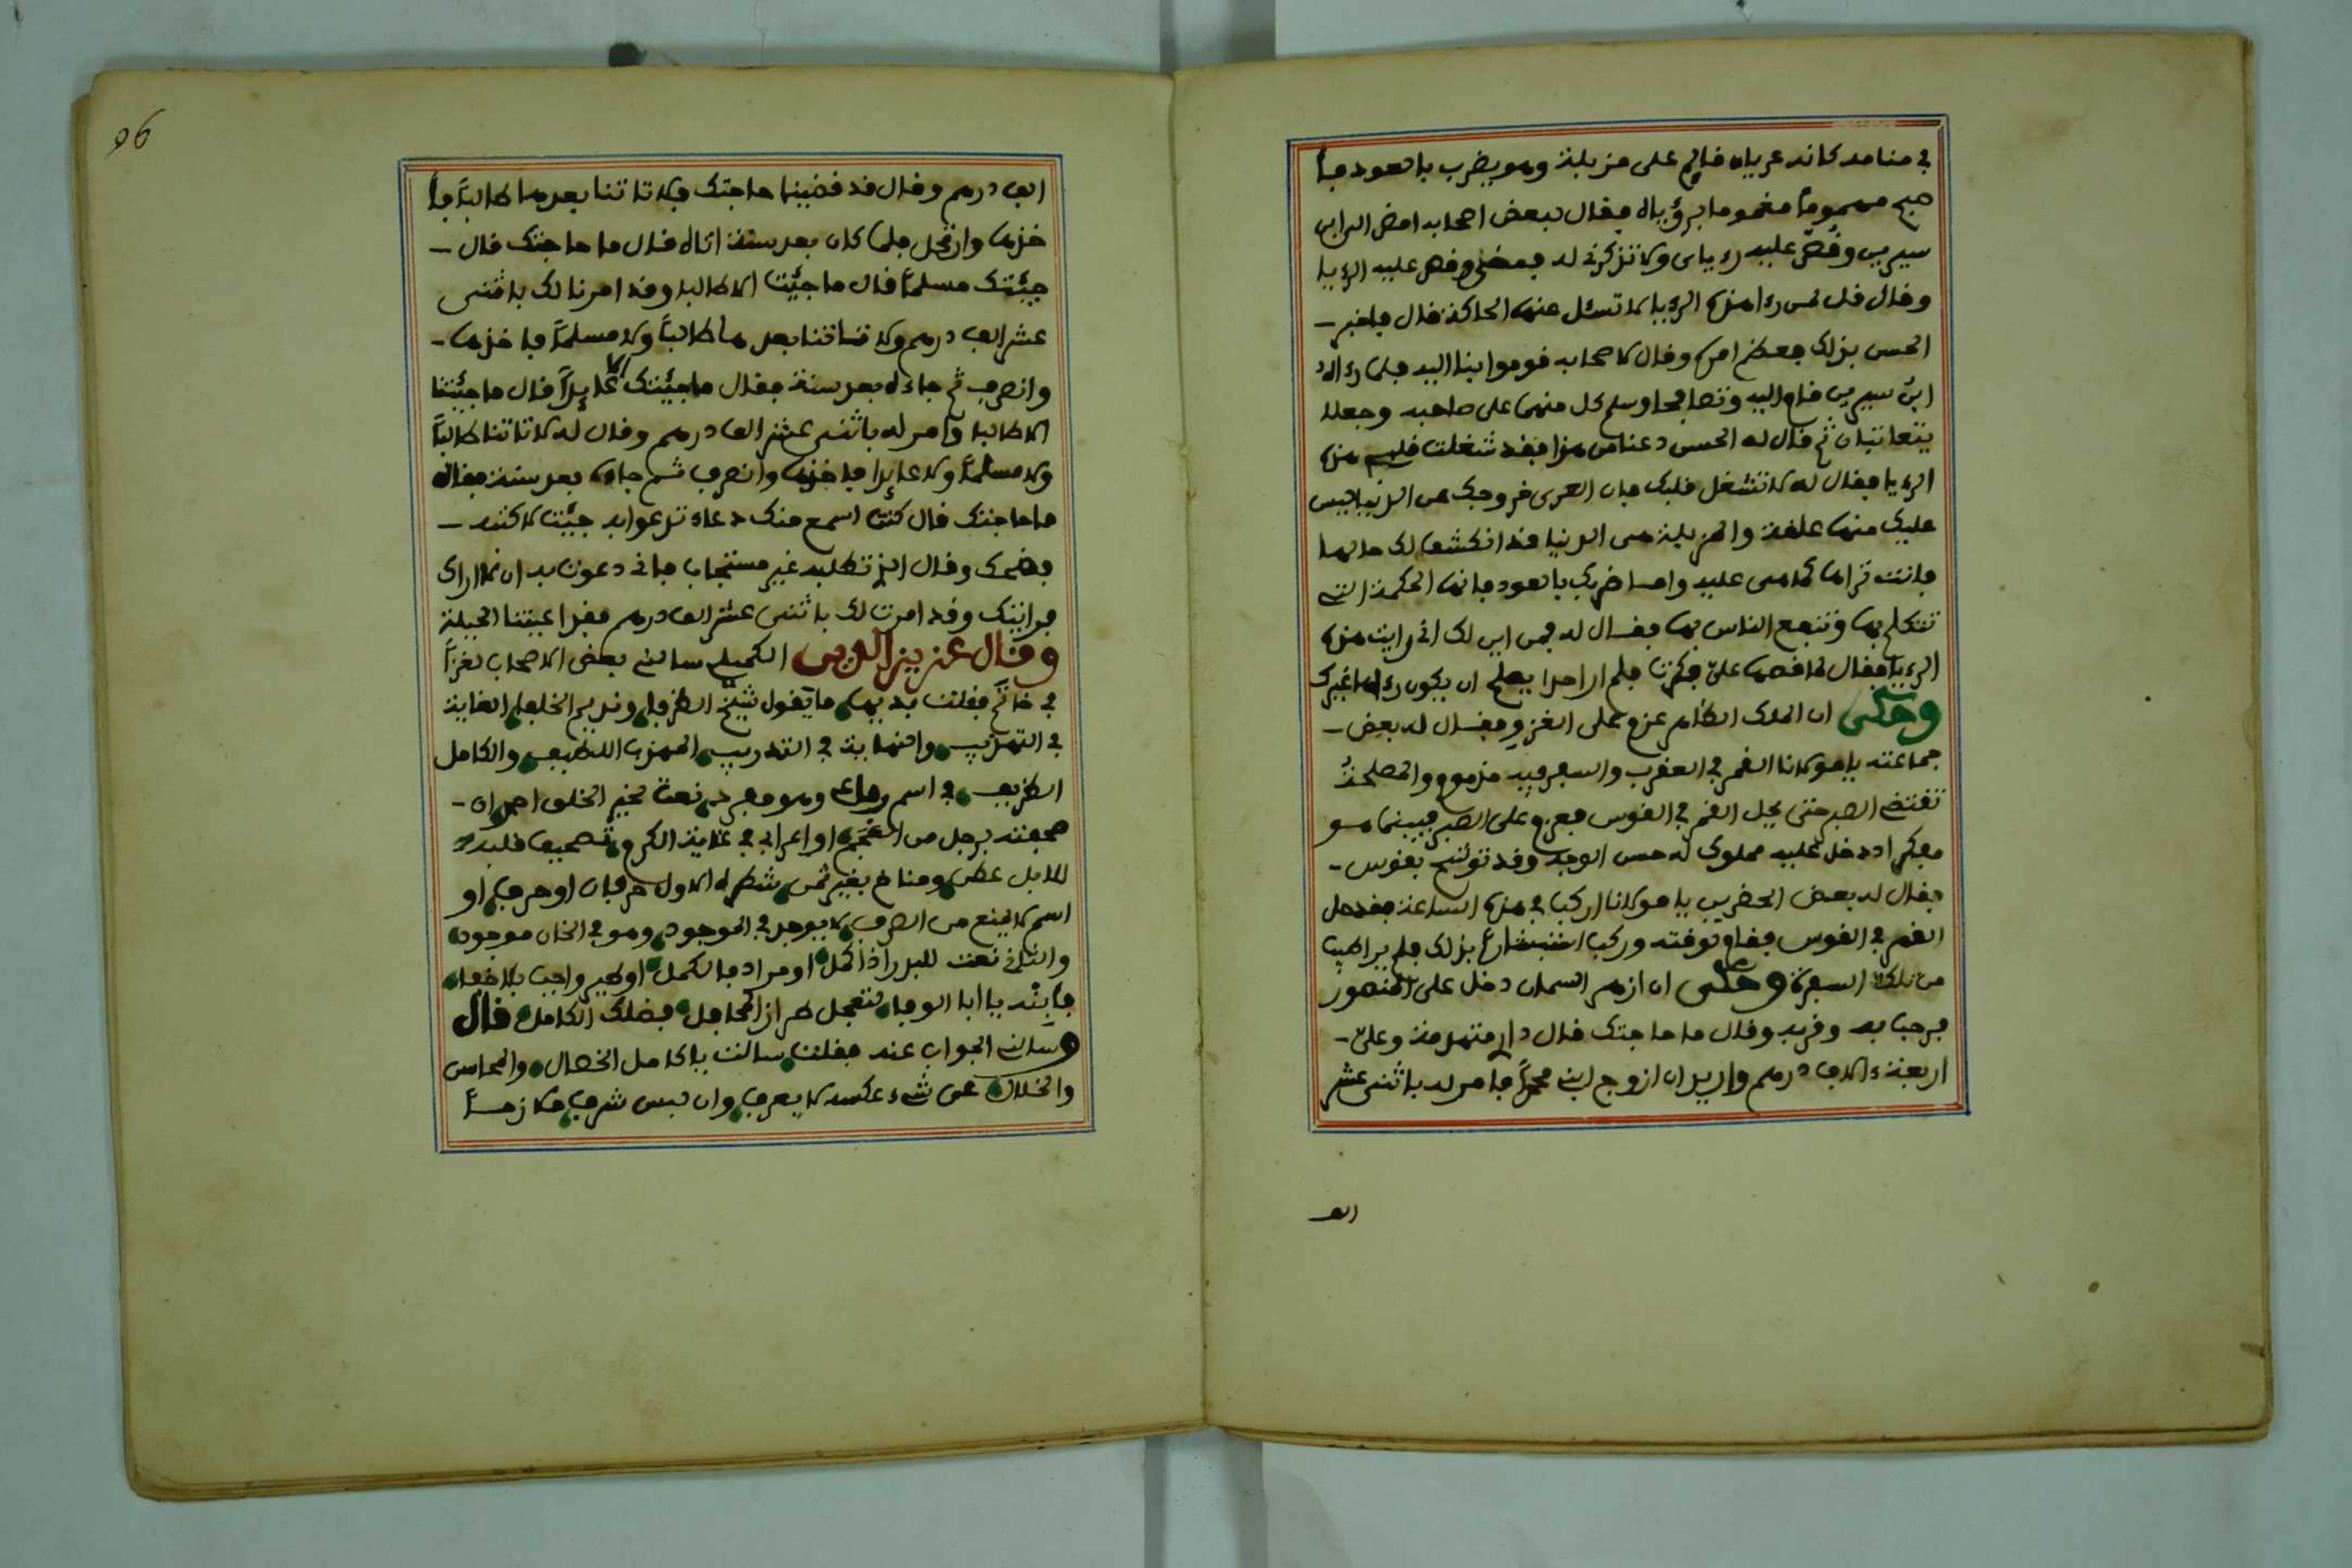 في منامه كانه عريان قايم على مزبلة وهو يضرب بالعود فا
صبح مهموماً مغموما برؤياه فقال لبعض اصحابه امض الى ابن
سيرين وقص عليه رءياى ولا تذكرني له فمضى وقص عليه الرءيا
وقال قل لمن رءا هذه الرءيا لا تسئل عنها الحاكة قال فاخبر
الحسن بذلك فعظم امره وقال لاصحابه قوموا بنا اليه فلما رءاه
ابن سيرين قام اليه وتصافحا وسلم كل منهما على صاحبه وجعلا
يتعاتبان ثم قال له الحسن دعنا من هذا فقد شغلت قلبي هذه
الرءيا فقال له لا تشغل قلبك فان العرى خروجك عن الدنيا ليس
عليك منها علقة والمزبلة هى الدنيا قد انكشف لك حالها
فانت تراها كما هى عليه واما ضربك بالعود فانها الحكمة التي
تتكلم بها وتنفع الناس بها فقال له فمن اين لك اني رايت هذه
الرءيا فقال لما قصها على فكرت فلم ار احدا يصلح ان يكون رءاها غيرك
وحكى ان الملك الظاهر عزم على الغزو فقال له بعض
جماعته يا مولانا القمر في العقرب والسفر فيه مذموم والمصلحة
تقتضي الصبر حتى يحل القمر في القوس فعزم على الصبر فبينما هو
مفكر اد دخل عليه مملوك له حسن الوجه وقد توشح بقوس
فقال له بعض الحضرين يا مولانا اركب في هذه الساعة فقد حل
القمر في القوس فقام لوقته وركب استبشارا بذلك فلم ير اطيب
من تلك السفرة وحكى ان ازهر السمان دخل على المنصور
فرحب به وقربه وقال ما حاجتك قال دارى متهدمة وعلى
اربعة ءالاف درهم واريد ان ازوج ابني محمداً فامر له باثنى عشر
الف
96
الف درهم وقال قد قضينا حاجتك فلا تاتنا بعدها طالباً فا
خذها وارتحل فلما كان بعد سنة اتاه فقال ما حاجتك قال
جيئتك مسلماً قال ما جيئت الا طالبا وقد امرنا لك باثنى
عشر الف درهم ولا تاتنا بعدها طالباً ولا مسلماً فاخذها
وانصرف ثم جاءه بعد سنة فقال ما جيئتك الا عايداً قال ما جيئتنا
الا طالبا وامر له باثنى عشر الف درهم وقال له لا تاتنا طالباً
ولا مسلماً ولا عايدا فاخذها وانصرف ثم جاءه بعد سنة فقال
ما حاجتك قال كنت اسمع منك دعاء تدعوا به جيئت لاكتبه
فضحك وقال الذي تطلبه غير مستجاب فاني دعوت به ان لا اراك
فرايتك وقد امرت لك باثنى عشر الف درهم فقد اعيتنا الحيلة
وقال عز يز الدين الكميلي سالني بعض الاصحاب لغزاً
في خاتم فقلت بديها ما يقول شيخ الظرفا وقديم الخلفا الغاية
في التهذيب والنهاية في التدريب المهذب اللطيف والكامل
الظريف في اسم رباعى وهو مفرد نعت لخير الخلق احمد ان
صحفته برجل من العجم او اعرابي في غاية الكرم وتصحيف قلبه
للابل عطن ومناخ بغير ثمن شطره الاول حرفان او حرف او
اسم لا يمنع من الصرف لا يوجد في الموجود وهو في الخان موجود
والثاني نعت للبدر اذا كمل او مراد فالكمل او طير واجب بلا خفاء
فابنه يا ابا الوفا لتعجل طراز المحافل بفضلك الكامل قال
وسالني الجواب عنه فقلت سالت يا كامل الخصال والمحاسن
والخلال عن شيء عكسه لا يعرف وان لبس شرف ملازمـاً